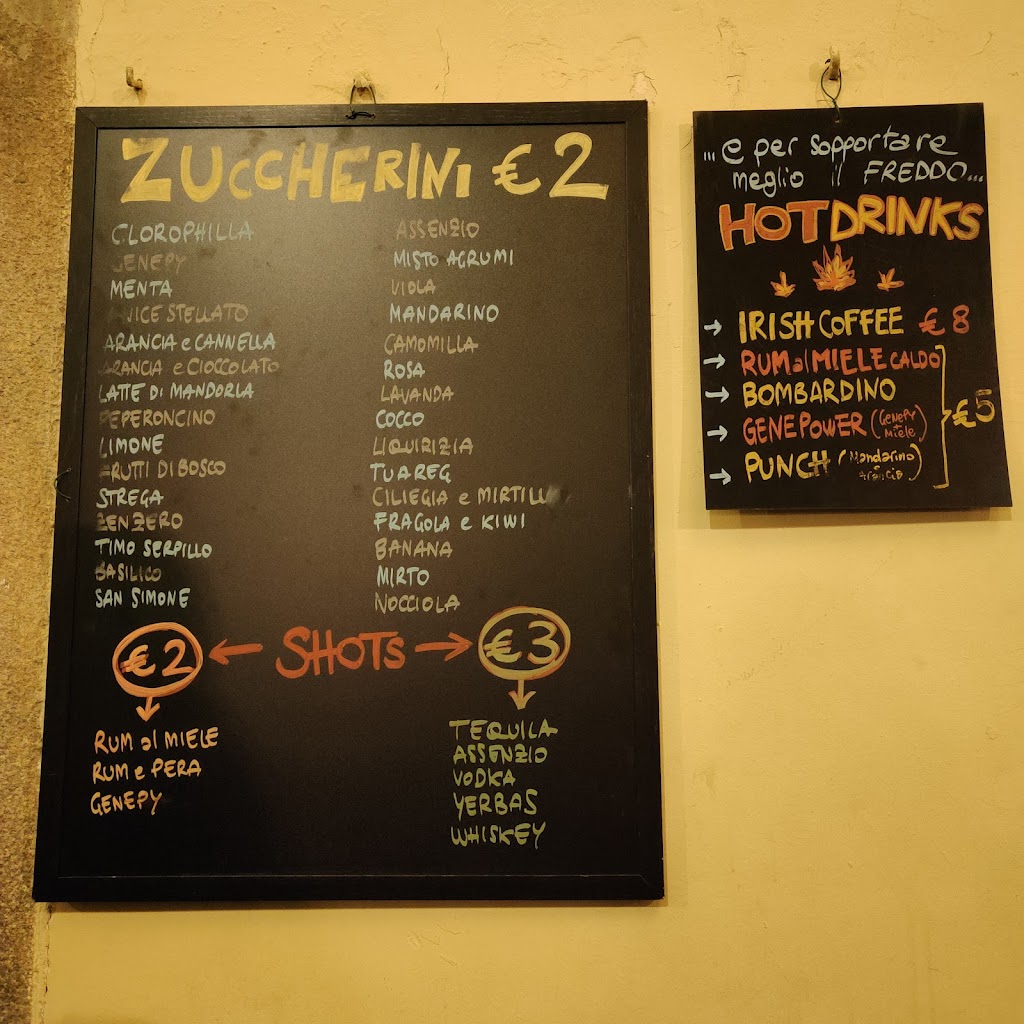 ZUCCHERINI €2
CLOROPHILLA
GENEPY
MENTA
ANICE STELLATO
ARANCIA e CANNELLA
ARANCIA e CIOCCOLATO
LATTE DI MANDORLA
PEPERONCINO
LIMONE
FRUTTI DI BOSCO
STREGA
ZENZERO
TIMO SERPILLO
BASILICO
SAN SIMONE
ASSENZIO
MISTO AGRUMI
VIOLA
MANDARINO
CAMOMILLA
ROSA
LAVANDA
COCCO
LIQUIRIZIA
TUAREG
CILIEGIA e MIRTILLO
FRAGOLA e KIWI
BANANA
MIRTO
NOCCIOLA
€2 ← SHOTS → €3
RUM al MIELE
RUM e PERA
GENEPY
TEQUILA
ASSENZIO
VODKA
YERBAS
WHISKEY
...e per sopportare
meglio il FREDDO...
HOT DRINKS
→ IRISH COFFEE €8
→ RUM al MIELE CALDO
→ BOMBARDINO
→ GENEPOWER (Genepy + Miele)
→ PUNCH (Mandarino + Arancia)
€5